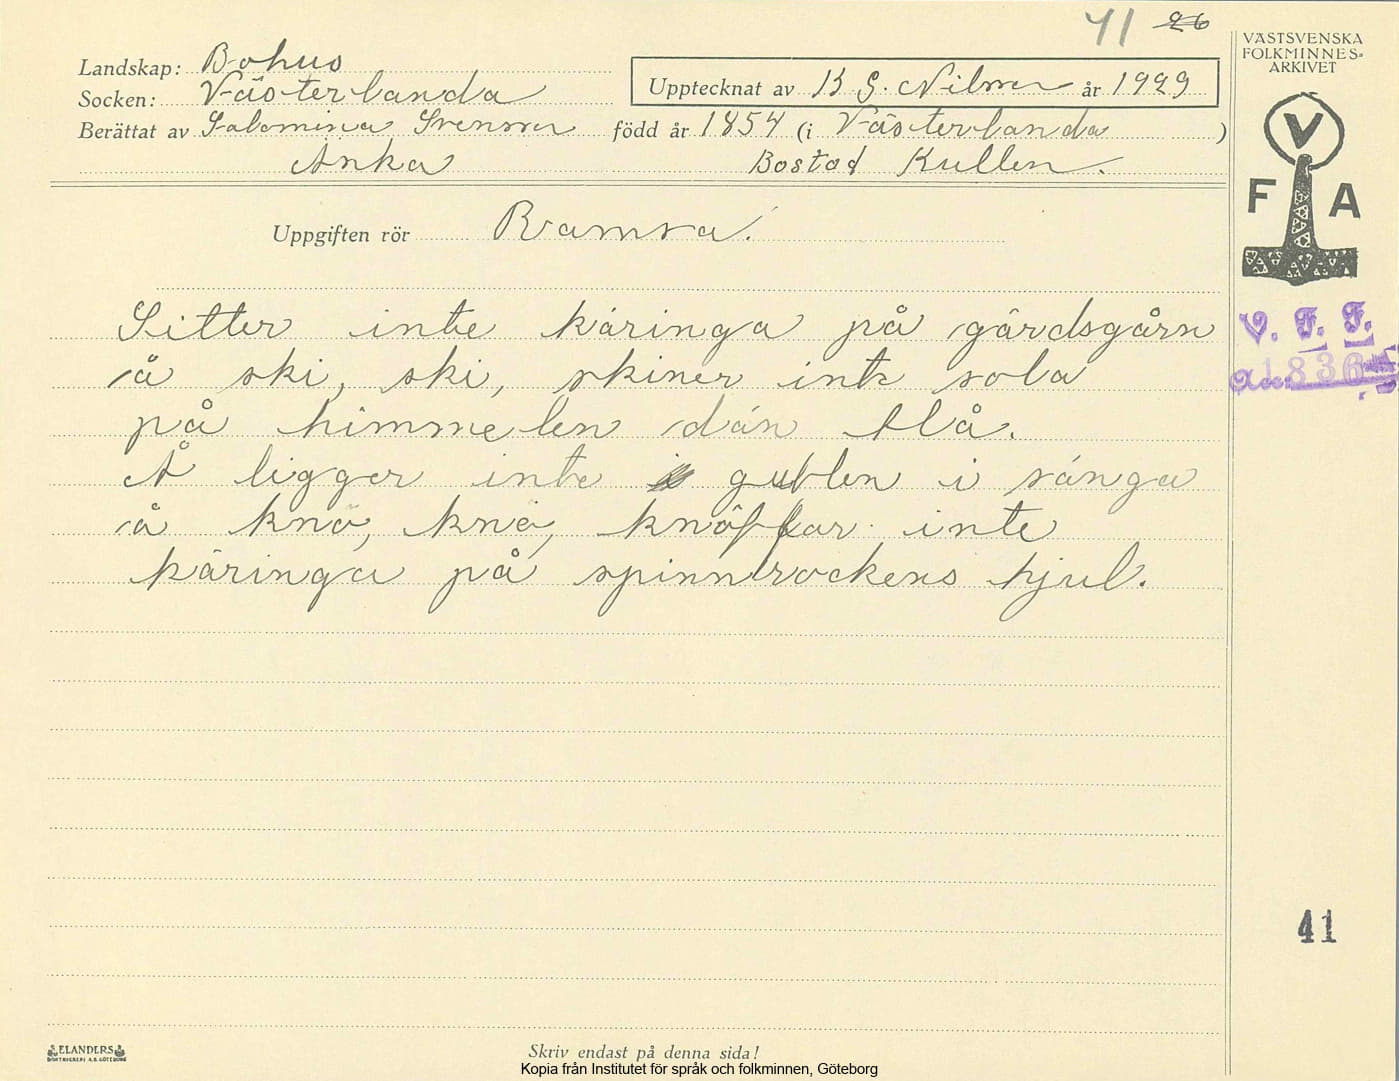 41 26
VÄSTSVENSKA
FOLKMINNES-
ARKIVET
Landskap: Bohus
Socken: Västerlanda
Upptecknat av K G. Nilsson år 1929
Berättat av Salomina Svensson född år 1854 (i Västerlanda )
Anka Bostad Kullen.
V
F A
Uppgiften rör Ramsa.
V. F. F.
Acc: 1836
Sitter inte käringa på gärdsgårn
å ski, ski, skiner inte sola
på himmelen dán blå.
Å ligger inte gubben i sänga
å knä, knä, knäppar inte
käringa på spinnrockens hjul.
41
ELANDERS
BOKTRYCKERI A.B. GÖTEBORG
Skriv endast på denna sida!
Kopia från Institutet för språk och folkminnen, Göteborg